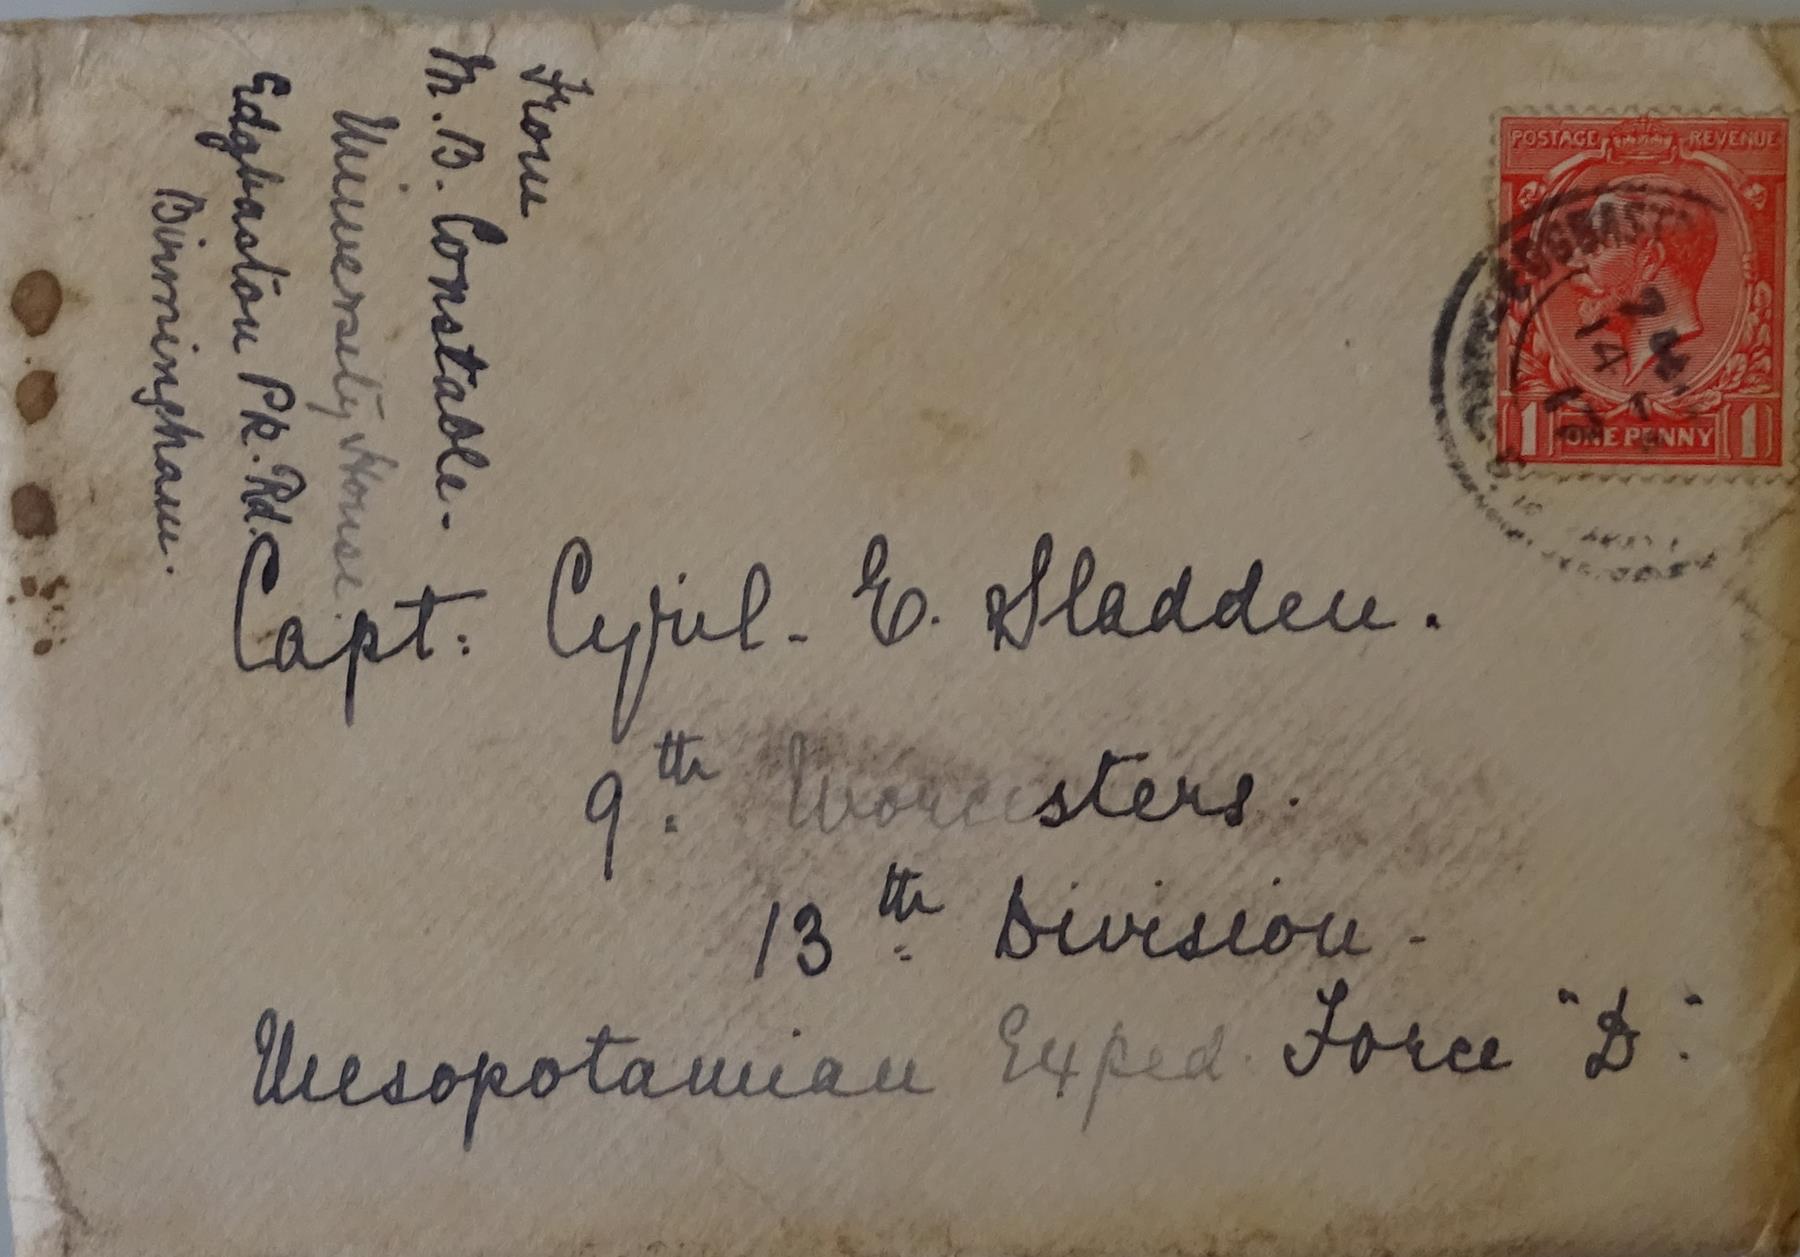 From
M. B. Constable-
University House.
Edgbaston Pk. Rd.
Birmingham.
POSTAGE REVENUE
14
17
1 ONE PENNY 1
Capt: Cyril- E. Sladden.
9th Worcesters.
13th Division-
Mesopotamian Exped. Force "D".